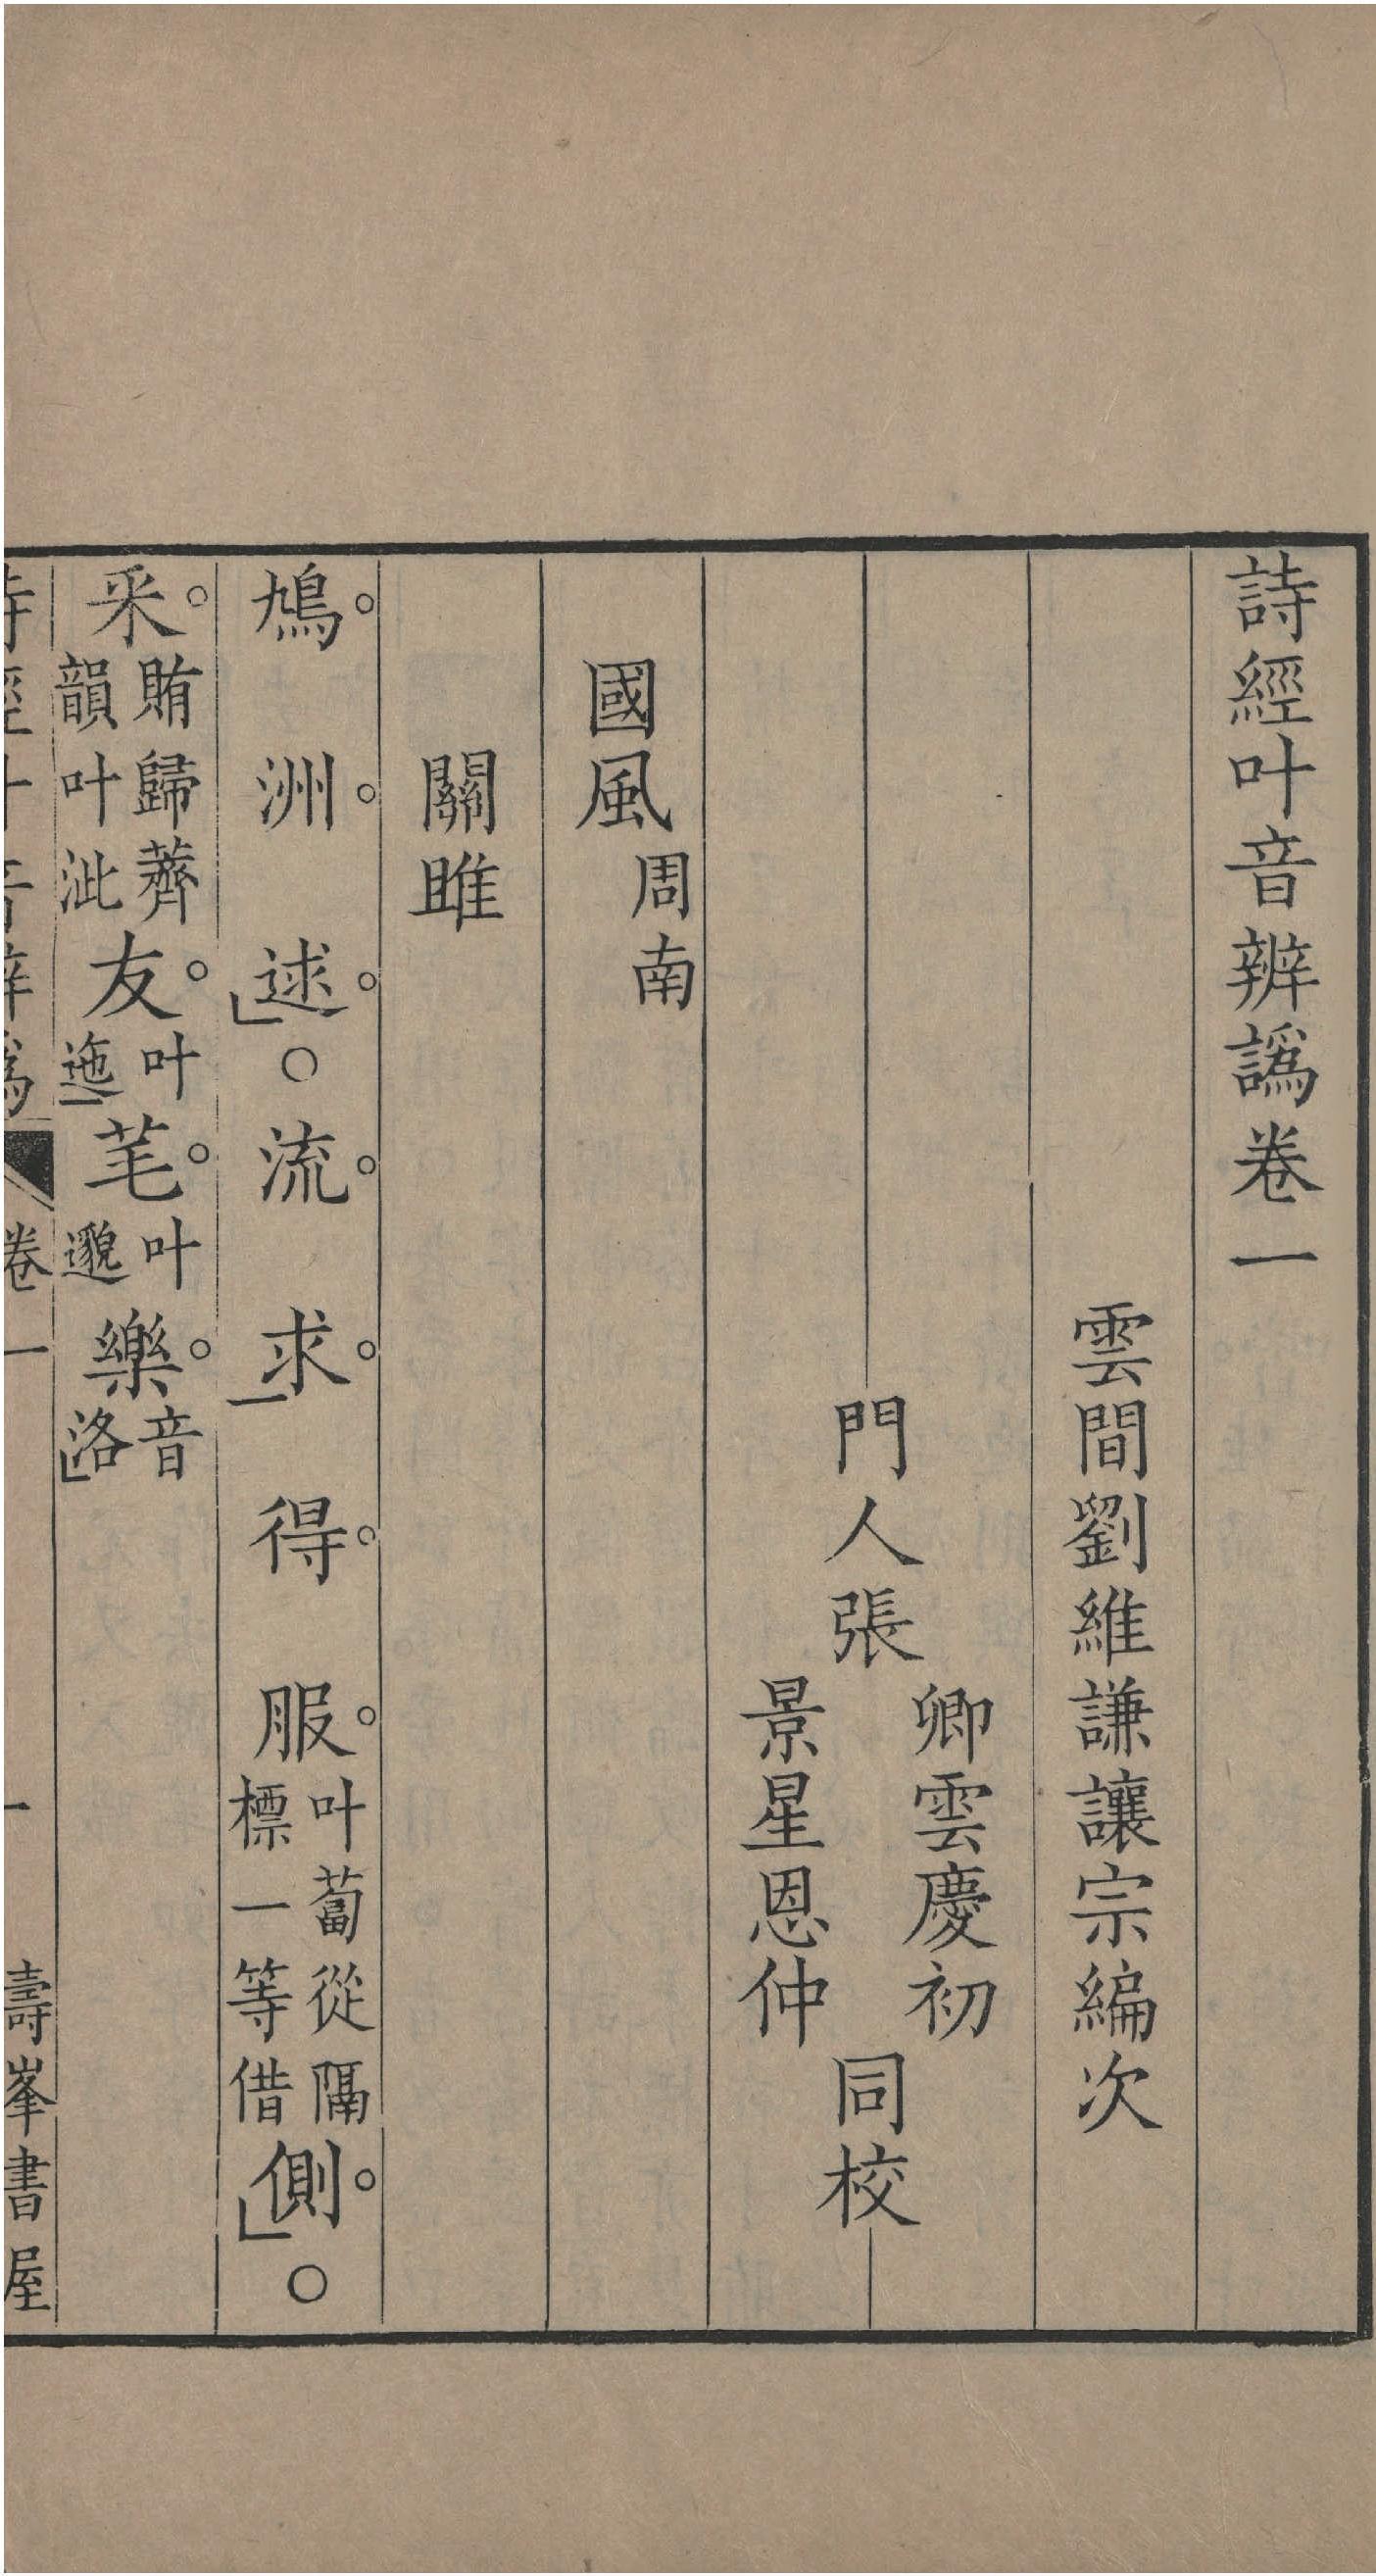 詩經叶音辨譌卷一
雲間劉維謙讓宗編次
門人張卿雲慶初景星恩仲同校
國風周南
關雎
鳩。洲。逑。」○流。求。得。服。叶蔔從隔標一等借側。」○
采。賄歸薺韻叶泚友。叶迤芼。叶邈樂。音洛」
詩經叶音辨譌 卷一 一 壽峯書屋